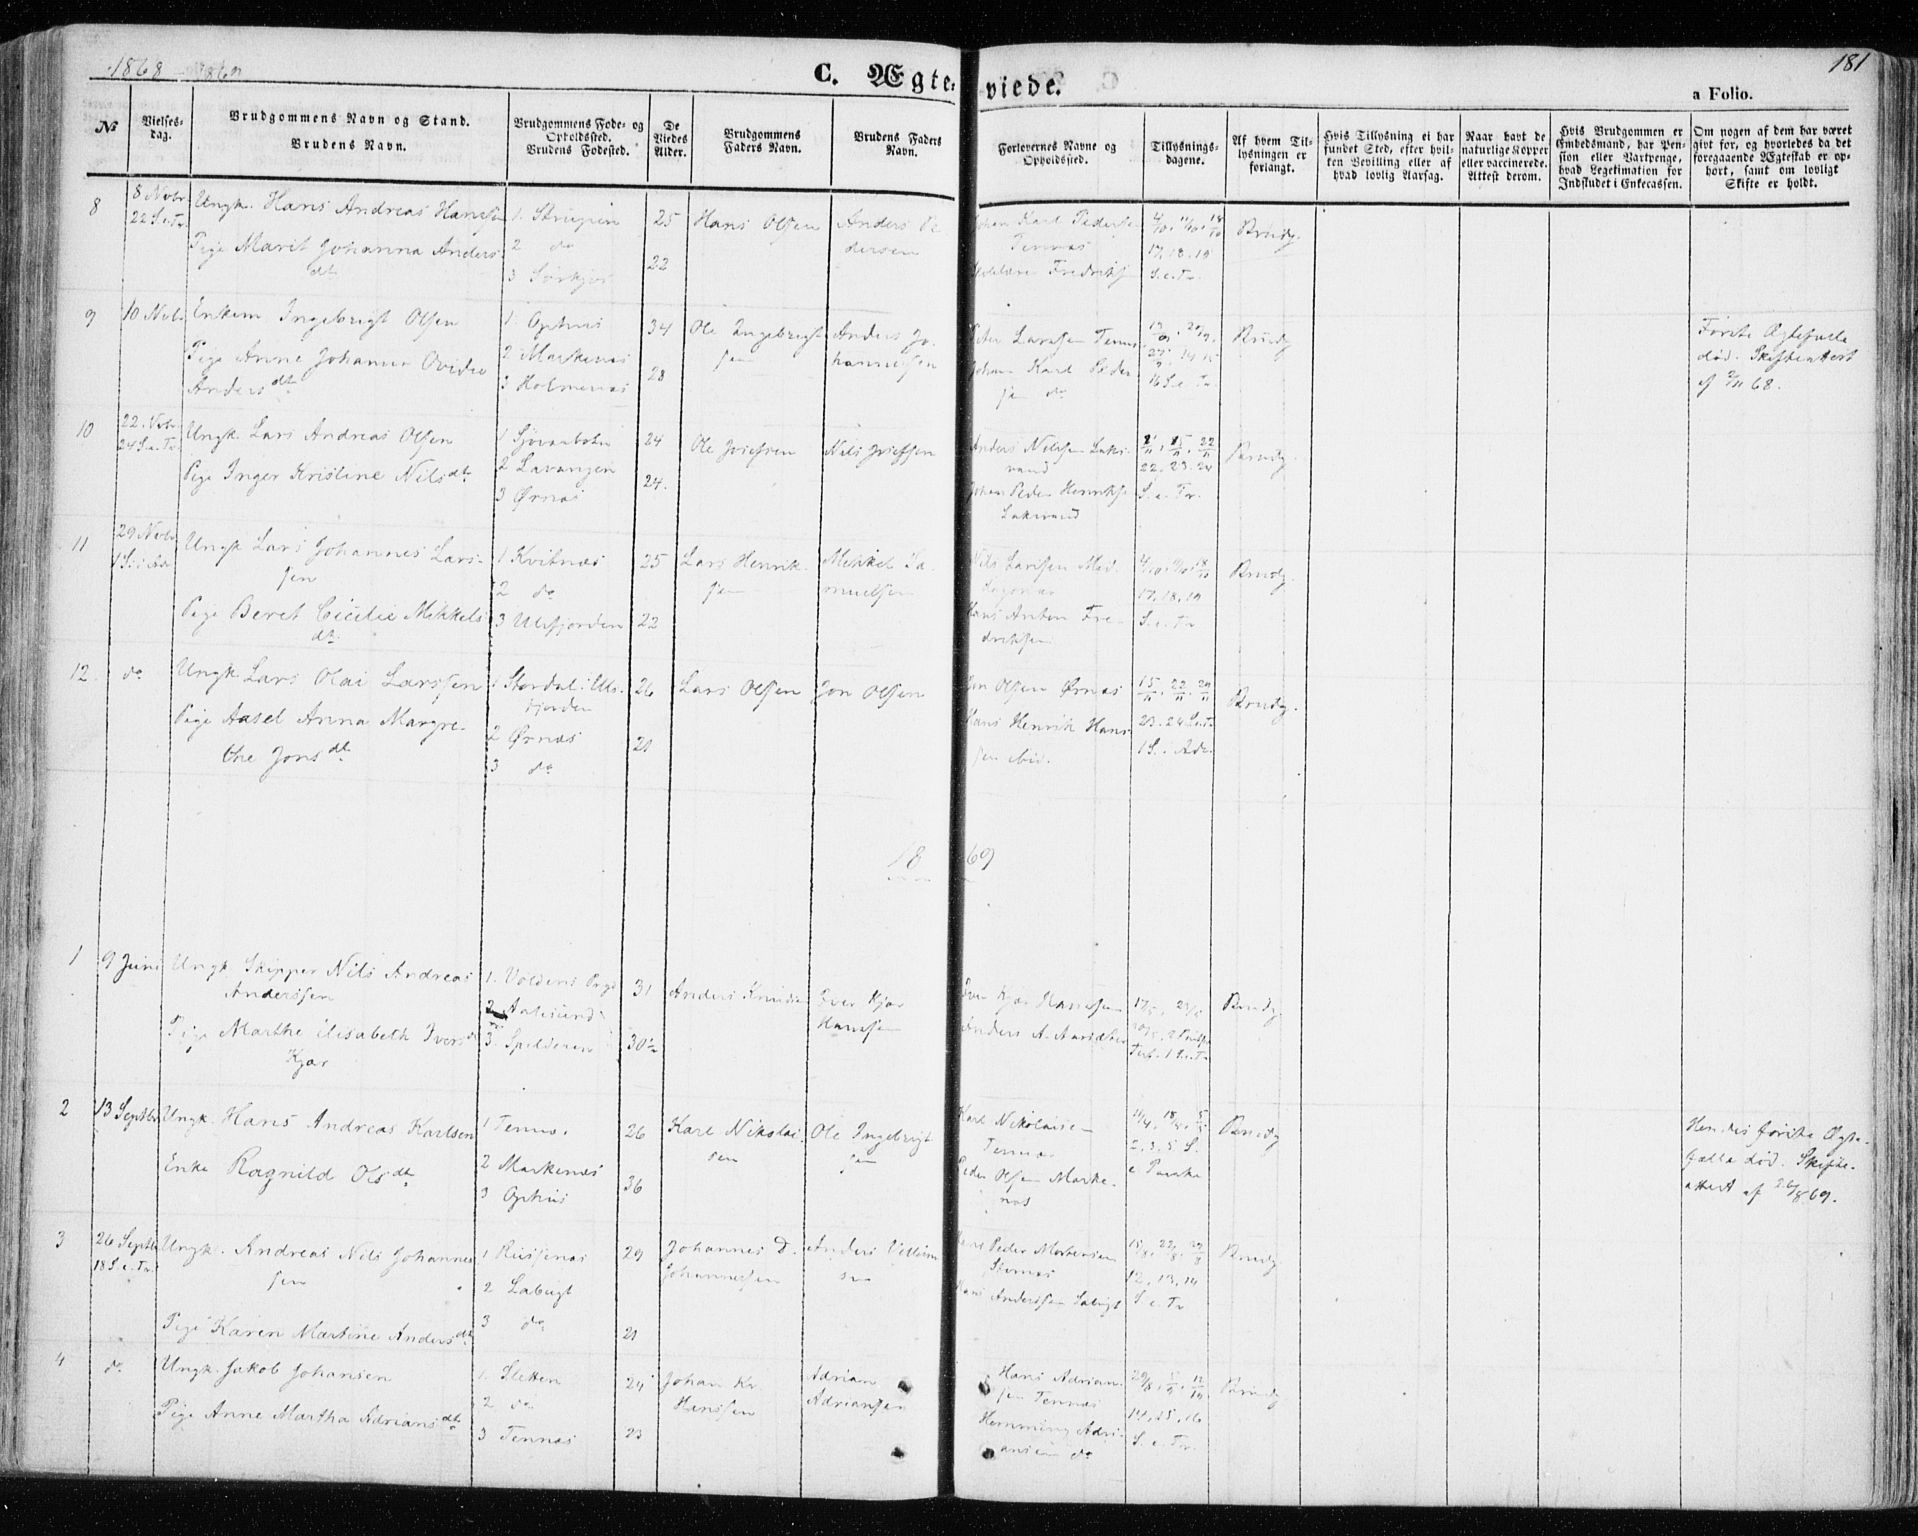 1868 1869
C. Ægteviede.
181
a Folio.
№
Vielsesdag.
Brudgommens Navn og Stand.
Brudens Navn.
Brudgommens Føde- og Opholdssted.
Brudens Fødested.
De Viedes Alder.
Brudgommens Faders Navn.
Brudens Faders Navn.
Forlovernes Navne og Opholdssted.
Tillysningsdagene.
Af hvem Tillysningen er forlangt.
Hvis Tillysning ei har fundet Sted, efter hvilken Bevilling eller af hvad lovlig Aarsag.
Naar havt de naturlige Kopper eller vaccinerede. Attest derom.
Hvis Brudgommen er Embedsmand, har Pension eller Vartpenge, hvad Legitimation for Indskudet i Enkecassen.
Om nogen af dem har været givt for, og hvorledes da det foregaaende Ægteskab er ophørt, samt om lovligt Skifte er holdt.
8
8 Novbr
22 S. e. Tr.
Ungk. Hans Andreas Hansen
Pige Marit Johanna Andersdtr
2 do
3 Sørkjos
25
22
Hans Olsen
Anders Pedersen
Johan Karl Pedersen
Tennæs
Fredriks
4/10, 11/10, 18/10
17, 18, 19
S. e. Tr.
Brudg.
9
10 Novbr
Enkem Ingebrigt Olsen
Pige Anne Johanna
Andersdt.
1. Ophus
2 Markenæs
3 Holmenæs
34
28
Ole Ingebrigtsen
Anders Johannessen
Peter Larssen Tennæs
Johan Karl Pedersen do
16 S. e. Tr.
Brudg
Første Ægtefælle
død. Skifteattest
af 2/11 68.
10
22. Nvbr
24 S. e. Tr.
Ungk. Lars Andreas Olsen
Pige Inger Kristine Nilsdt
1 Sjøvasbotn
2 Lavangen
3 Ørnæs
24
24.
Ole Josefsen
Nils Josefsen
Anders Nilssen Laksvand
Johan Peder Henriks
Laksvand
8/11, 15/11, 22/11
22, 23, 24
S. e. Tr.
Brudg.
11
29 Novbr
1 S. i Adv
Ungk Lars Johannes Larssen
Pige Beret Cicilie Mikkelsdt.
1 Kvitnæs
2 do
3 Ulsfjorden
25
22
Lars Henriksen
Mikkel Samuelsen
Nils Larssen
Hans Anton Fredriksen
4/10, 11/10, 18/10
17, 18, 19
S. e. Tr
Brudg.
12.
do
Ungk. Lars Olai Larssen
Pige Aasel Anna Margrethe Jonsdt.
1 Stordal i Ulsfjorden
2 Ørnæs
3 do
26
21
Lars Olsen
Jon Olsen
Jon Olsen Ørnæs
Hans Henrik Hanssen ibid.
15/11, 22/11, 29/11
23. 24 S. e. Tr
1 S. i Adv.
Brudg.
1869
1
9 Juni
Ungk. Skipper Nils Andreas
Anderssen
Pige Marthe Elisabeth Iversdt
Kjær
1. Voldens Prgd
2 Aalesund
3. Spildern
31
30½
Anders Knuds
Iver Kjær
Hanssen
Iver Kjær Hanssen
Anders A.
Brudg
2
13 Septbr
Ungk. Hans Andreas Karlsen
Enke Ragnild Olsdt
1 Tennæs.
2 Markenæs
3 Ophus
26
36
Karl Nikolaisen
Ole Ingebrigtsen
Karl Nikolaisen
Tennæs
Peder Olsen Markenæs
11/4, 18/4,
2, 3, 5 S.
e. Paaske
Brudg
Hendes første Ægtefælle død. Skifteattest af 26/8 69.
3
26 Septbr
18 S. e. Tr.
Ungk. Andreas Nils Johannessen
Pige Karen Martine Andersdt
1 Russenæs
2 Sabugt
3 do
29
21
Johannes D.
Johannessen
Anders
Peder Mortensen
Hans Anderssen
15/8, 22/8, 29/8
12, 13, 14
S. e. Tr
Brudg
4
do
Ungk. Jakob Johansen
Pige Anne Martha Adriansdt
1. Sletten
2 do
3 Tennæs
24
23
Johan Kr.
Hanssen
Adrian
Adriansen
Hans Adriansen Tennæs
Hemming Adriansen do
14, 15, 16
S. e. Tr.
Brudg